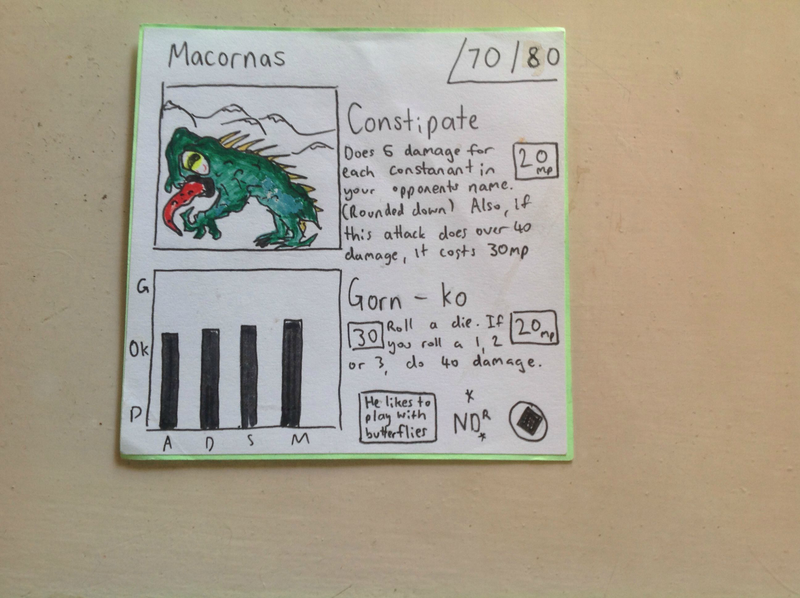 Macornas
/70/80
Constipate
Does 5 damage for
each constanant in
your opponents name.
(Rounded down) Also, if
this attack does over 40
damage, it costs 30mp
20
mp
G
Ok
P
A D S M
Gorn - ko
30
Roll a die. If
you roll a 1, 2
or 3, do 40 damage.
20mp
He likes to
play with
butterflies
* NDR *